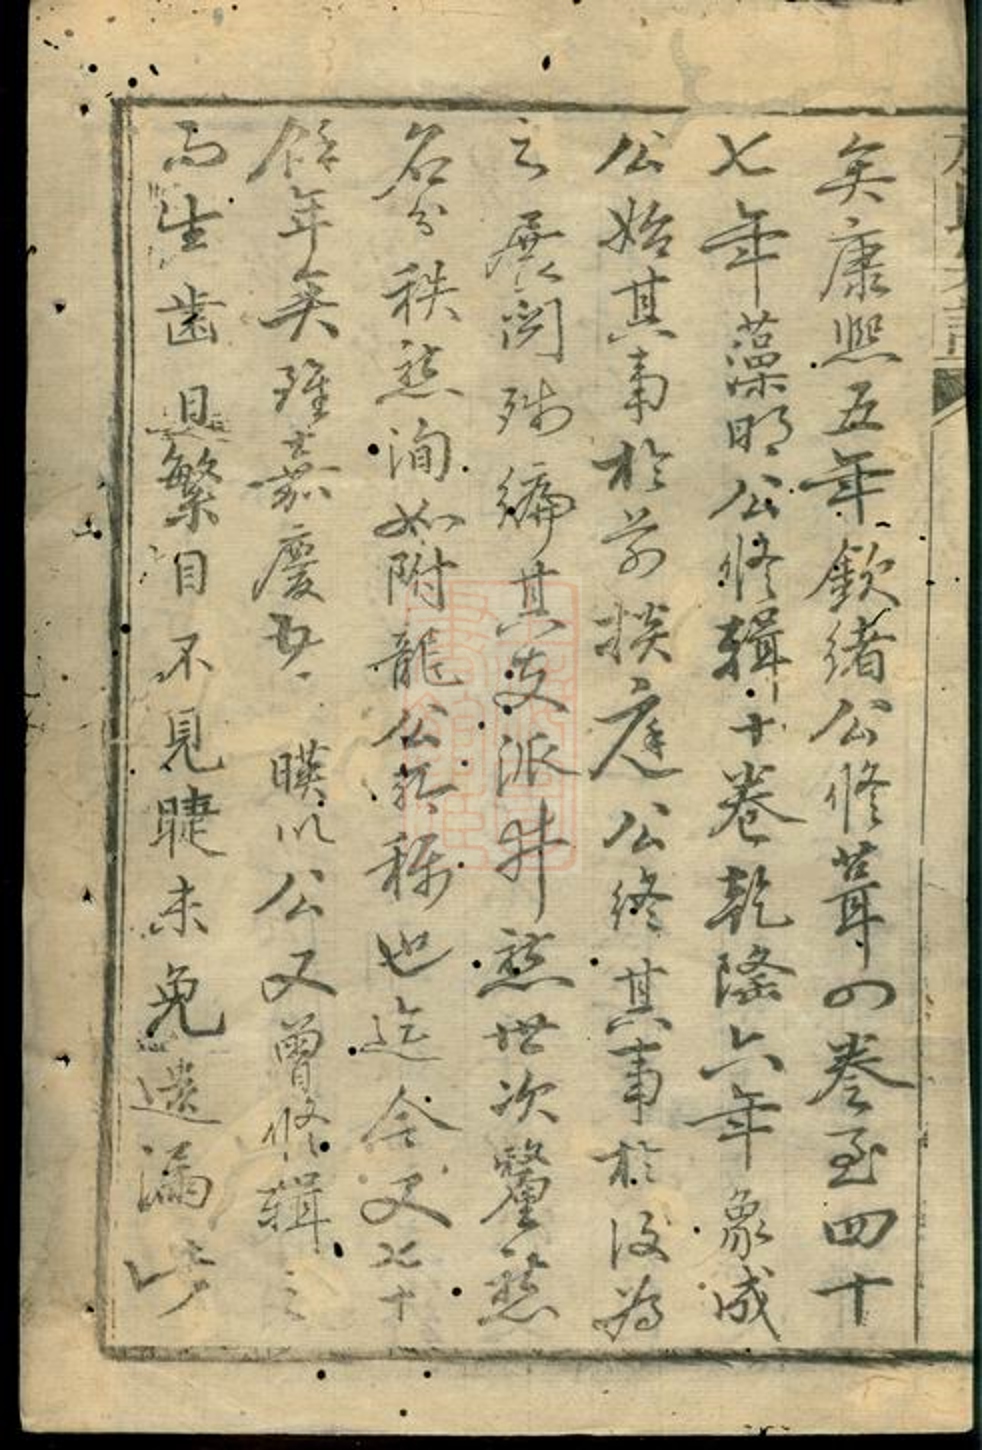 矣康熙五年欽緒公修葺四卷至四十
七年藻明公修輯十卷乾隆六年象成
公始其事於前掞庭公終其事於後為
之展閱殘編其支派井然世次釐然
名分秩然洵如附龍公所称也迄今又六十
餘年矣雖嘉慶 暎以公又曾修輯之
而生齒日繁目不見睫未免遺漏